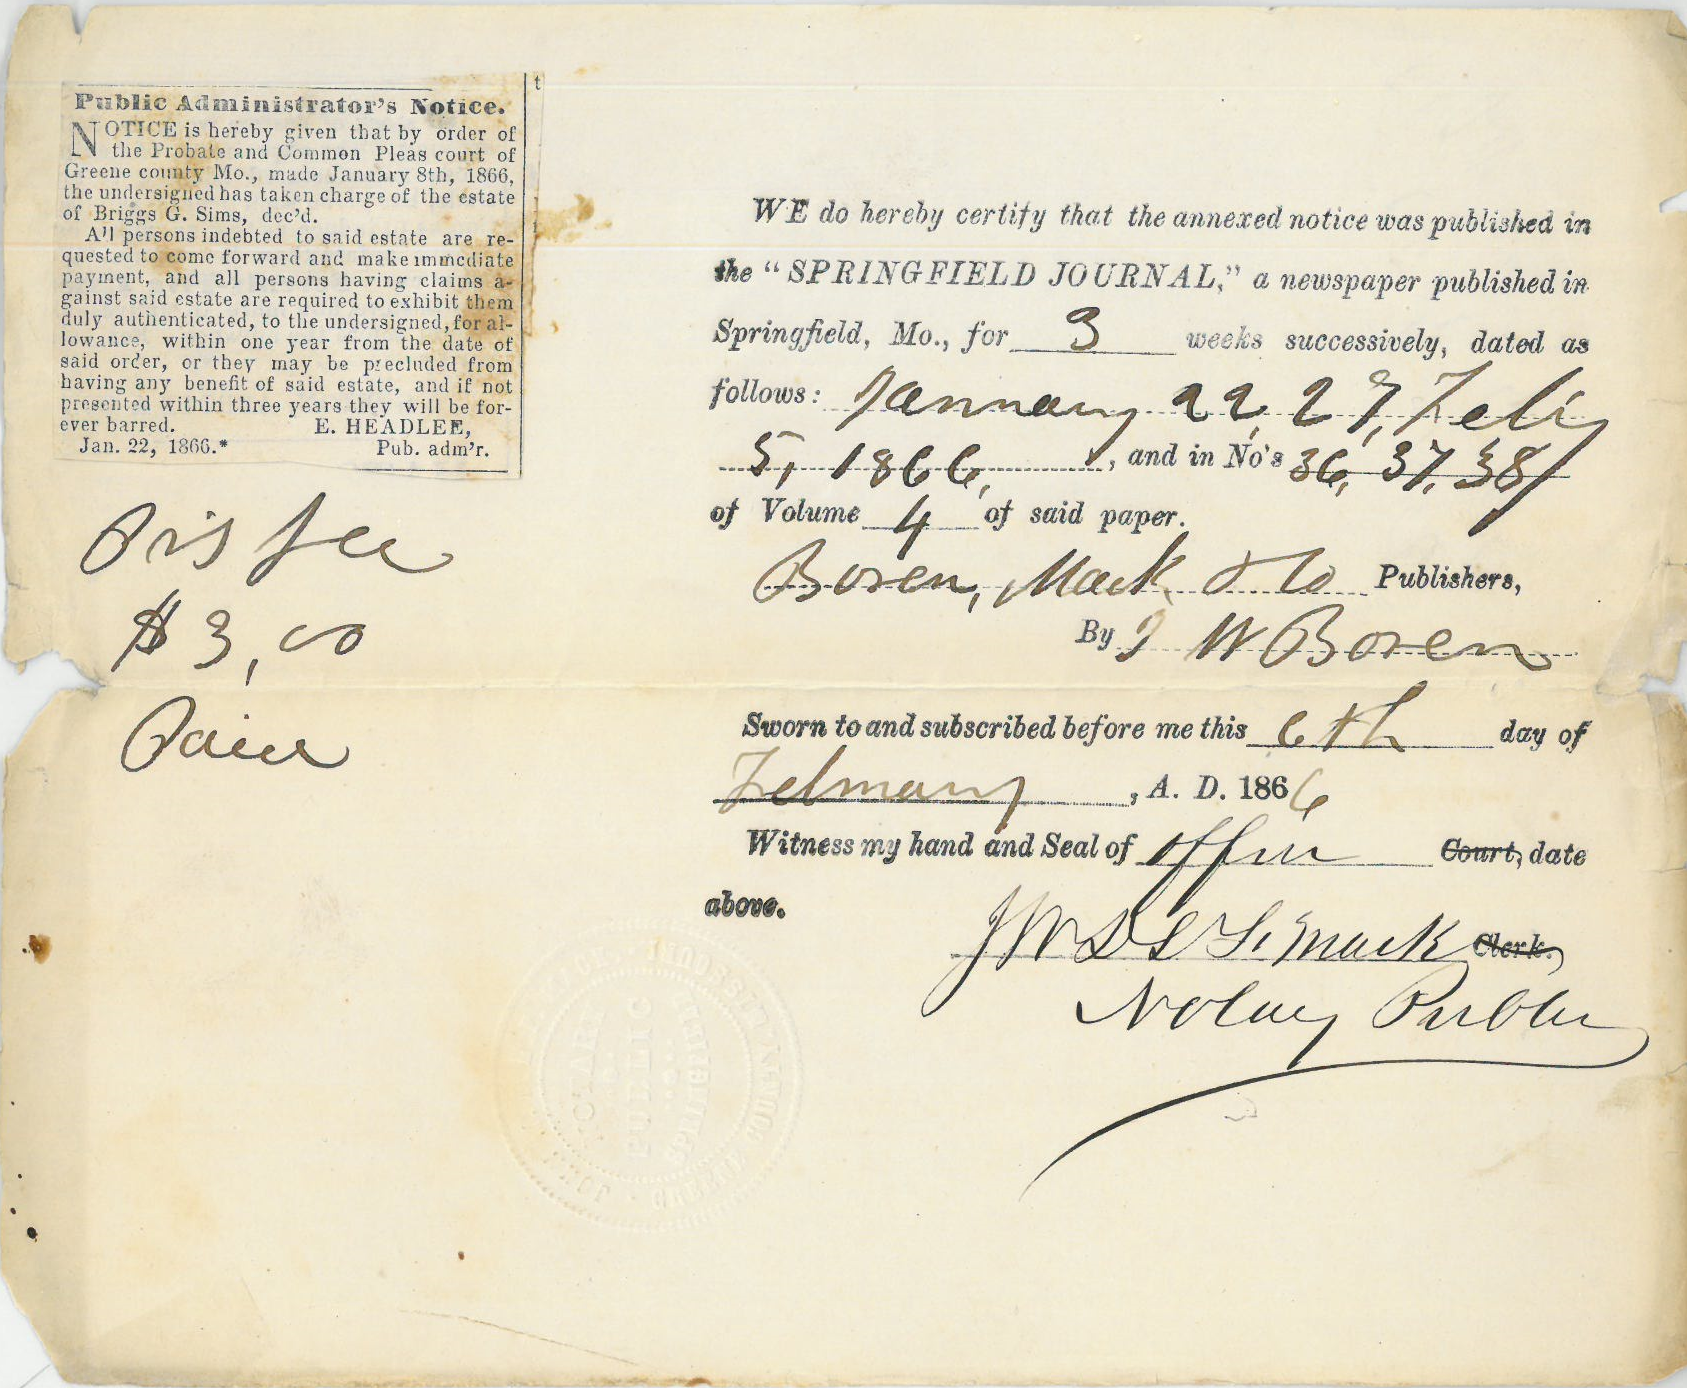 Public Administrator's Notice.
NOTICE is hereby given that by order of
the Probate and Common Pleas court of
Greene county Mo., made January 8th, 1866,
the undersigned has taken charge of the estate
of Briggs G. Sims, dec'd.
All persons indebted to said estate are re-
quested to come forward and make immediate
payment, and all persons having claims a-
gainst said estate are required to exhibit them
duly authenticated, to the undersigned, for al-
lowance, within one year from the date of
said order, or they may be precluded from
having any benefit of said estate, and if not
presented within three years they will be for-
ever barred. E. HEADLEE,
Jan. 22, 1866.* Pub. adm'r.
t
fee
$3,00
WE do hereby certify that the annexed notice was published in
the "SPRINGFIELD JOURNAL," a newspaper published in
Springfield, Mo., for 3 weeks successively, dated as
follows: January 22, 29, Feby
5, 1866, , and in No's 36, 37, 38,
of Volume 4 of said paper.
Boren, Mack & Co Publishers,
By J W Boren
Sworn to and subscribed before me this 6th day of
February , A. D. 1866
Witness my hand and Seal of office Court, date
above.
Mack Clerk.
Notary Public
NOTARY PUBLIC
SPRINGFIELD
GREENE COUNTY